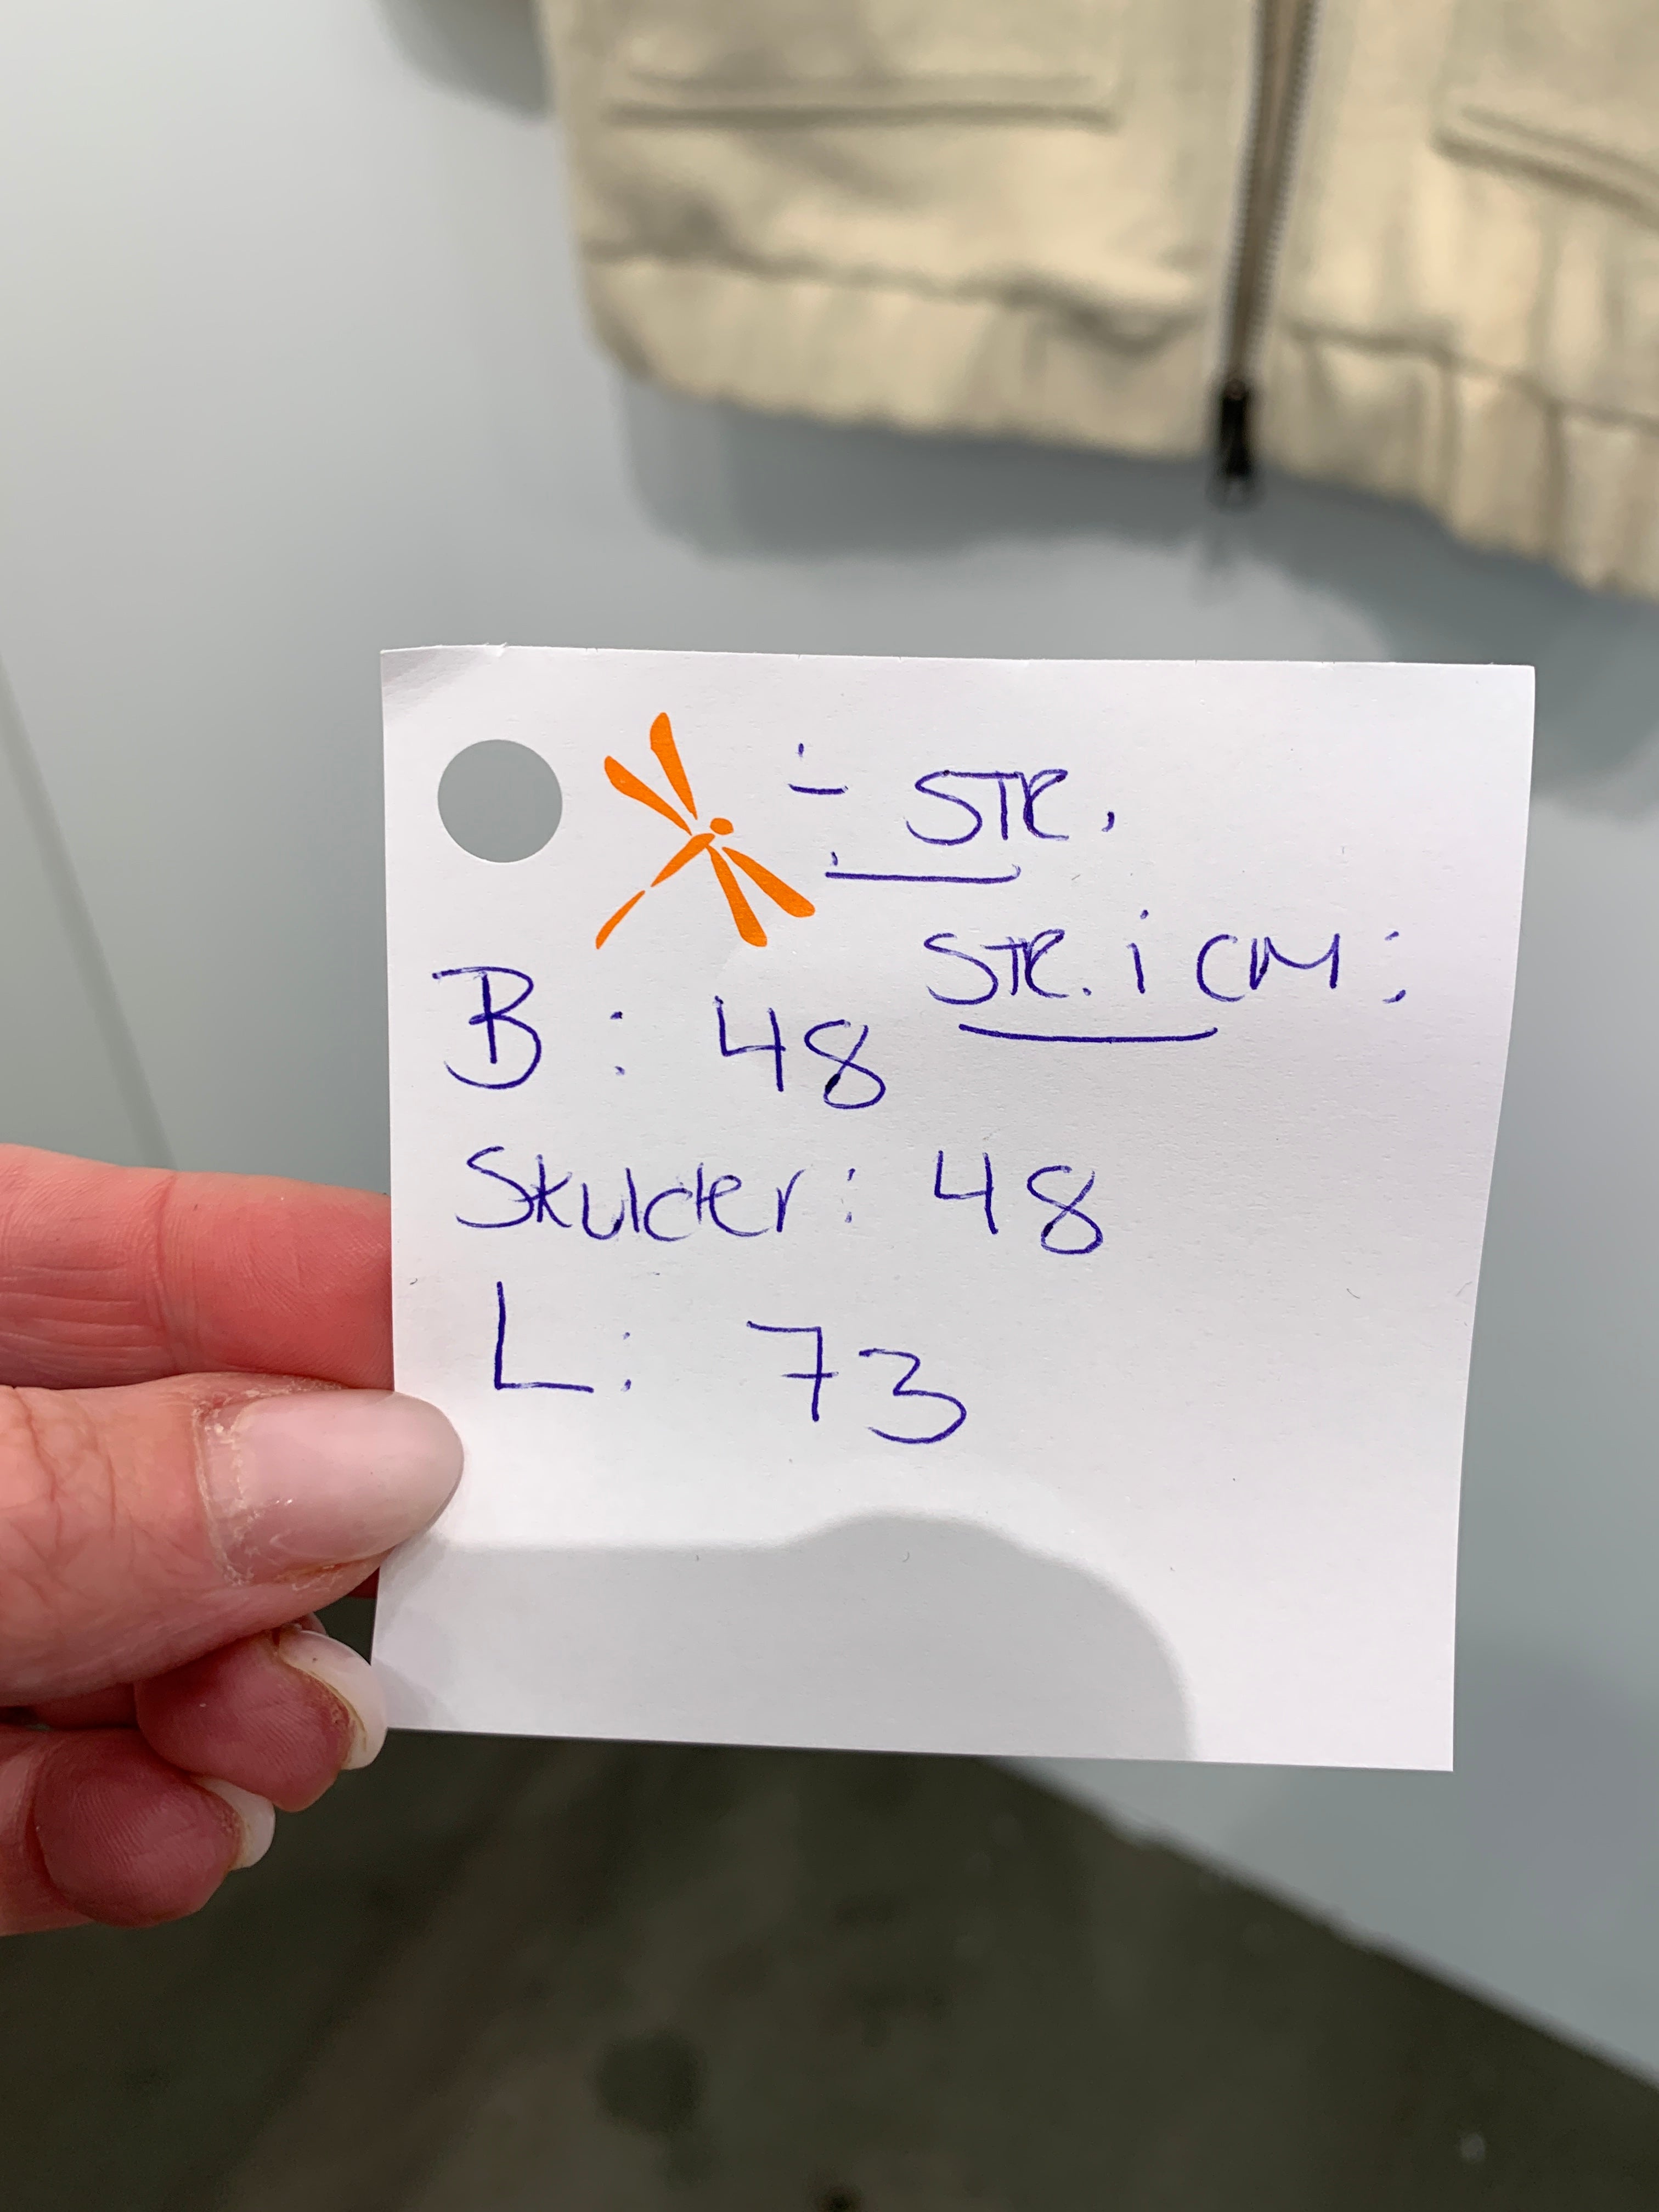 ÷ STR.
STR. i CM:
B: 48
Skulder: 48
L: 73